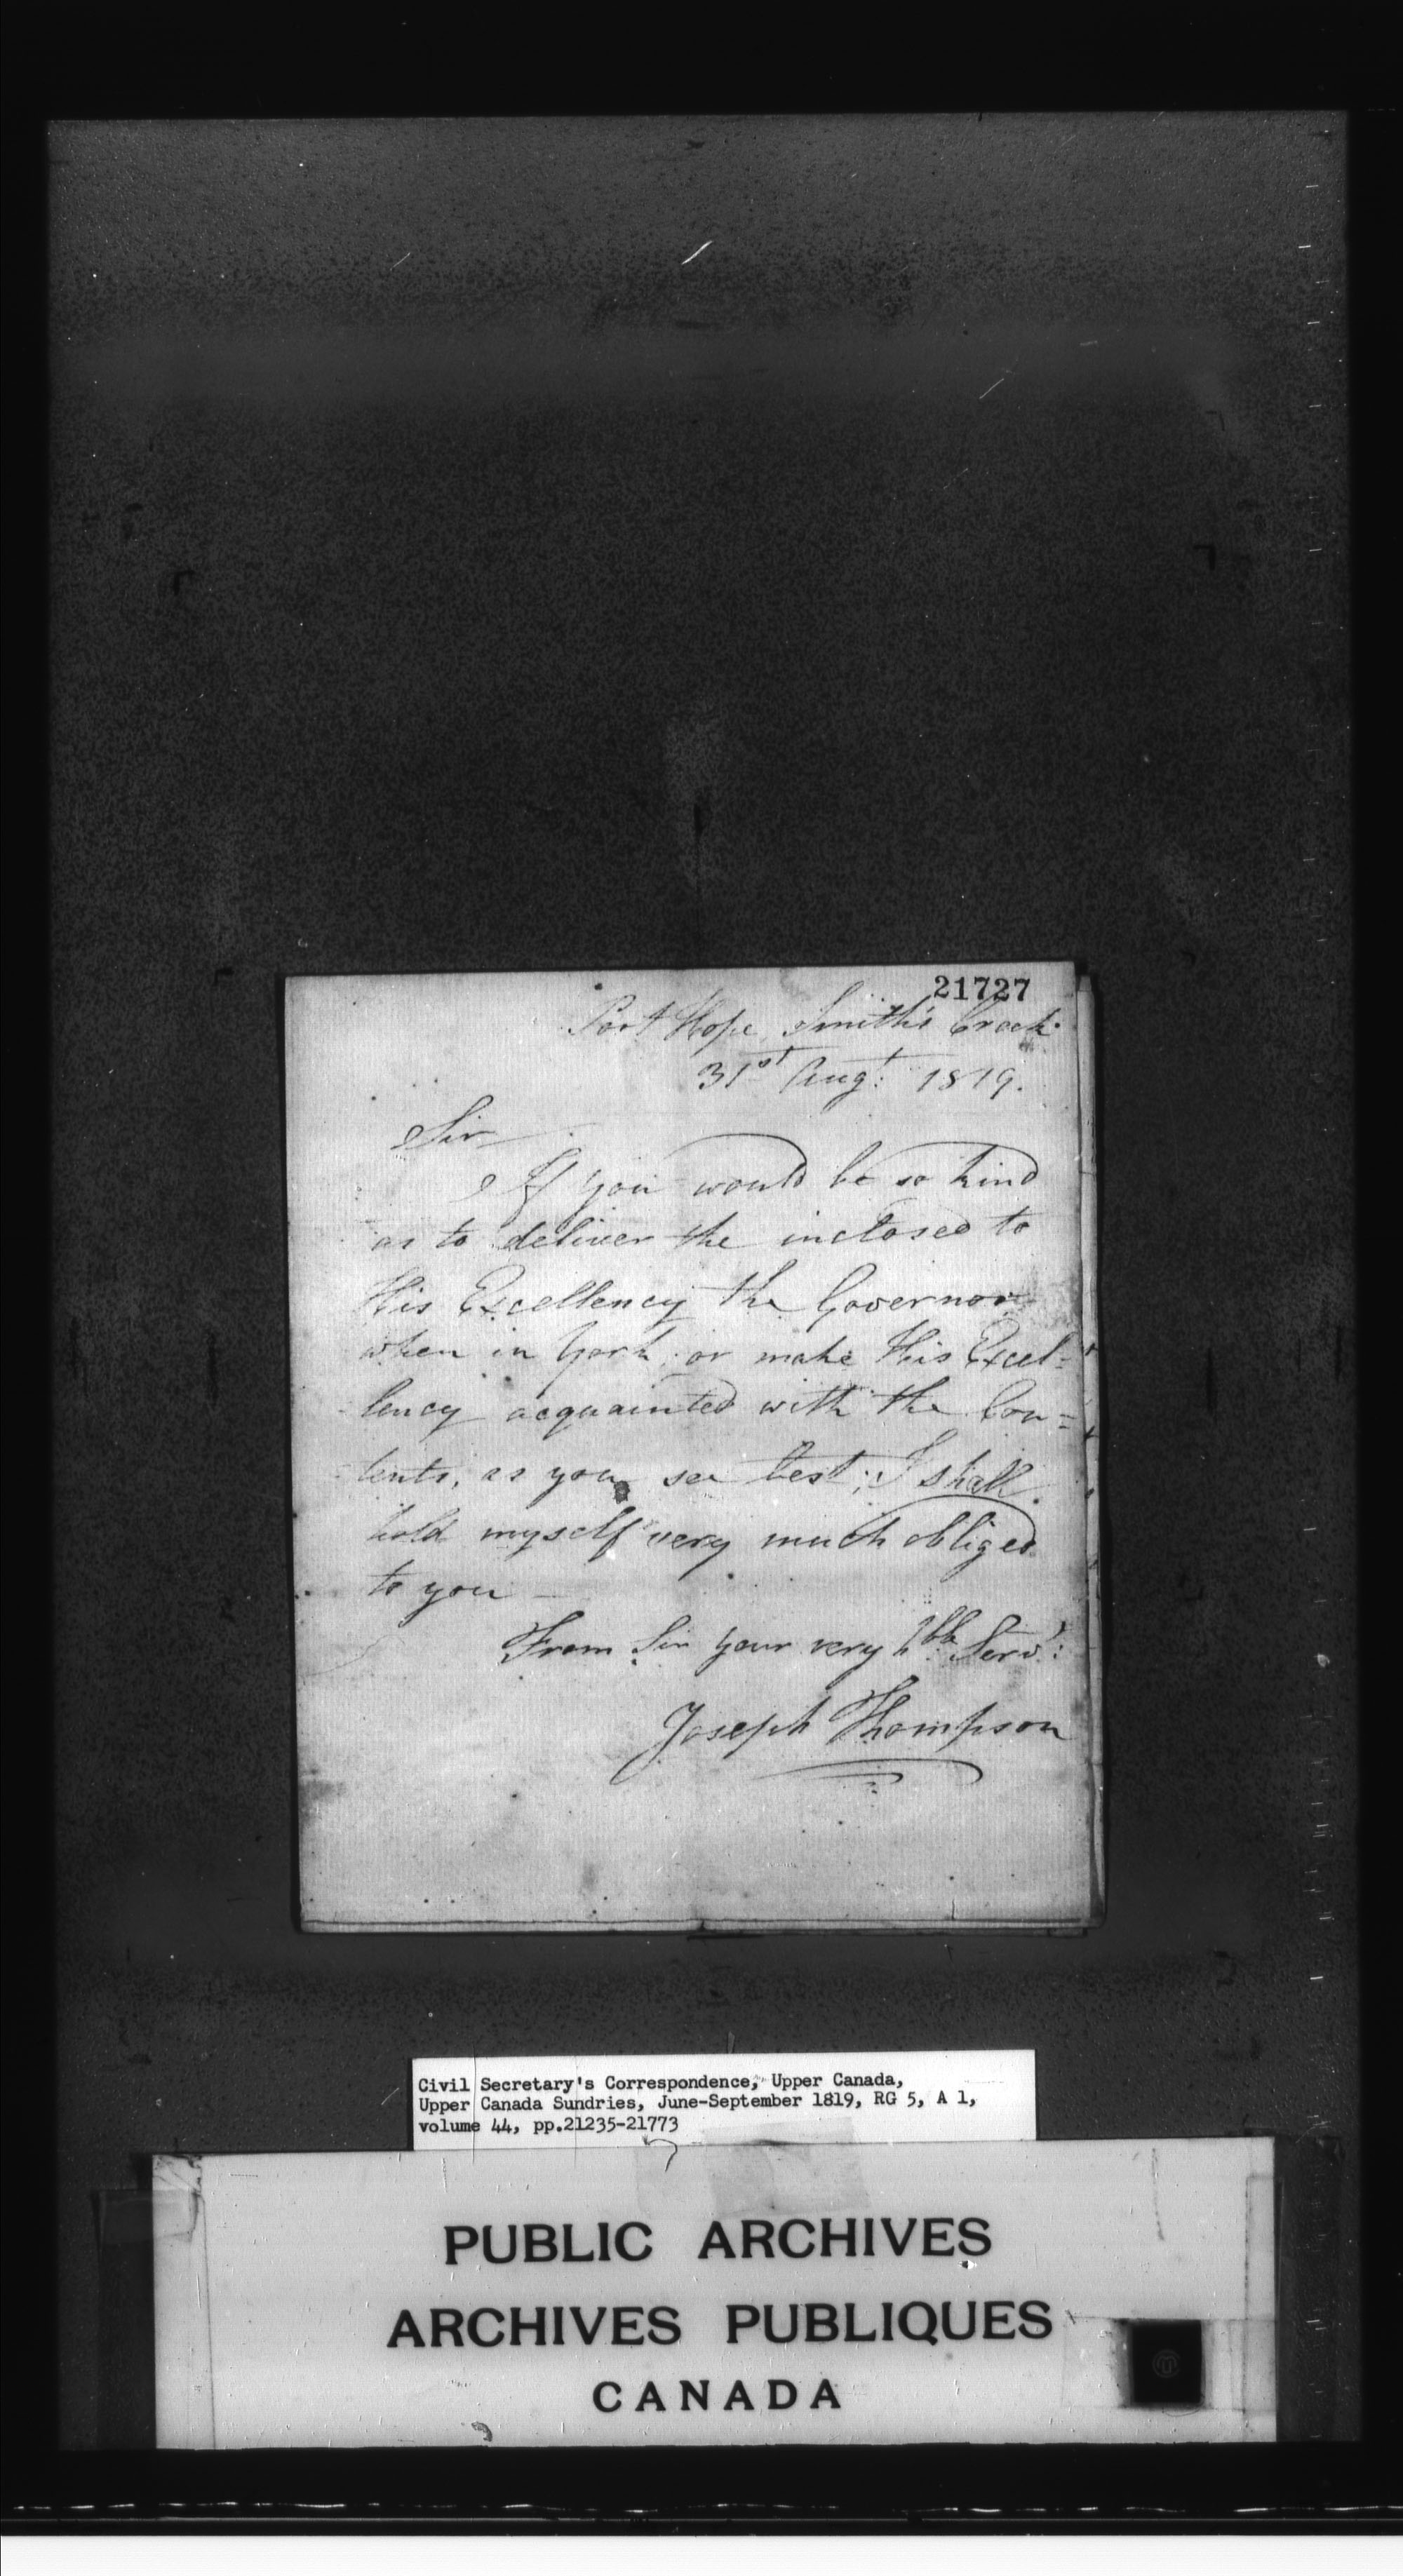 21727
Port Hope Smith's Creek
31st Augt: 1819.
Sir
If you would be so kind
as to deliver the inclosed to
His Excellency the Governor
when in York, or make His Excel=
lency acquainted with the Con=
tents, as you see best; I shall
hold myself very much obliged
to you —
From Sir your very hble Servt:
Joseph Thompson
Civil Secretary's Correspondence, Upper Canada,
Upper Canada Sundries, June-September 1819, RG 5, A 1,
volume 44, pp.21235-21773
PUBLIC ARCHIVES
ARCHIVES PUBLIQUES
CANADA